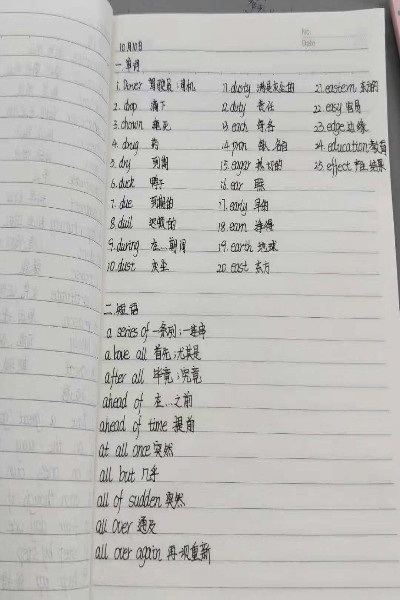 No.
Date
10月10日
一.单词
1. Driver 驾驶员;司机 11. dusty 满是灰尘的 21. eastern 东部的
2. drop 滴下 12. duty 责任 22. easy 容易
3. drown 淹死 13. each 每各 23. edge 边缘
4. drug 药 14. 24. education 教育
5. dry 15. eager 热切的 25. effect 结果
6. duck 鸭子 16. ear
7. due 到期的 17. early 早的
8. dull 迟钝的 18. earn 挣得
9. during 在…期间 19. earth 地球
10. dust 灰尘 20. east 东方
二.短语
a series of 一系列;一连串
above all 首先;尤其是
after all 毕竟;究竟
ahead of 在…之前
ahead of time 提前
at all once 突然
all but 几乎
all of sudden 突然
all over 遍及
all over again 再一次重新